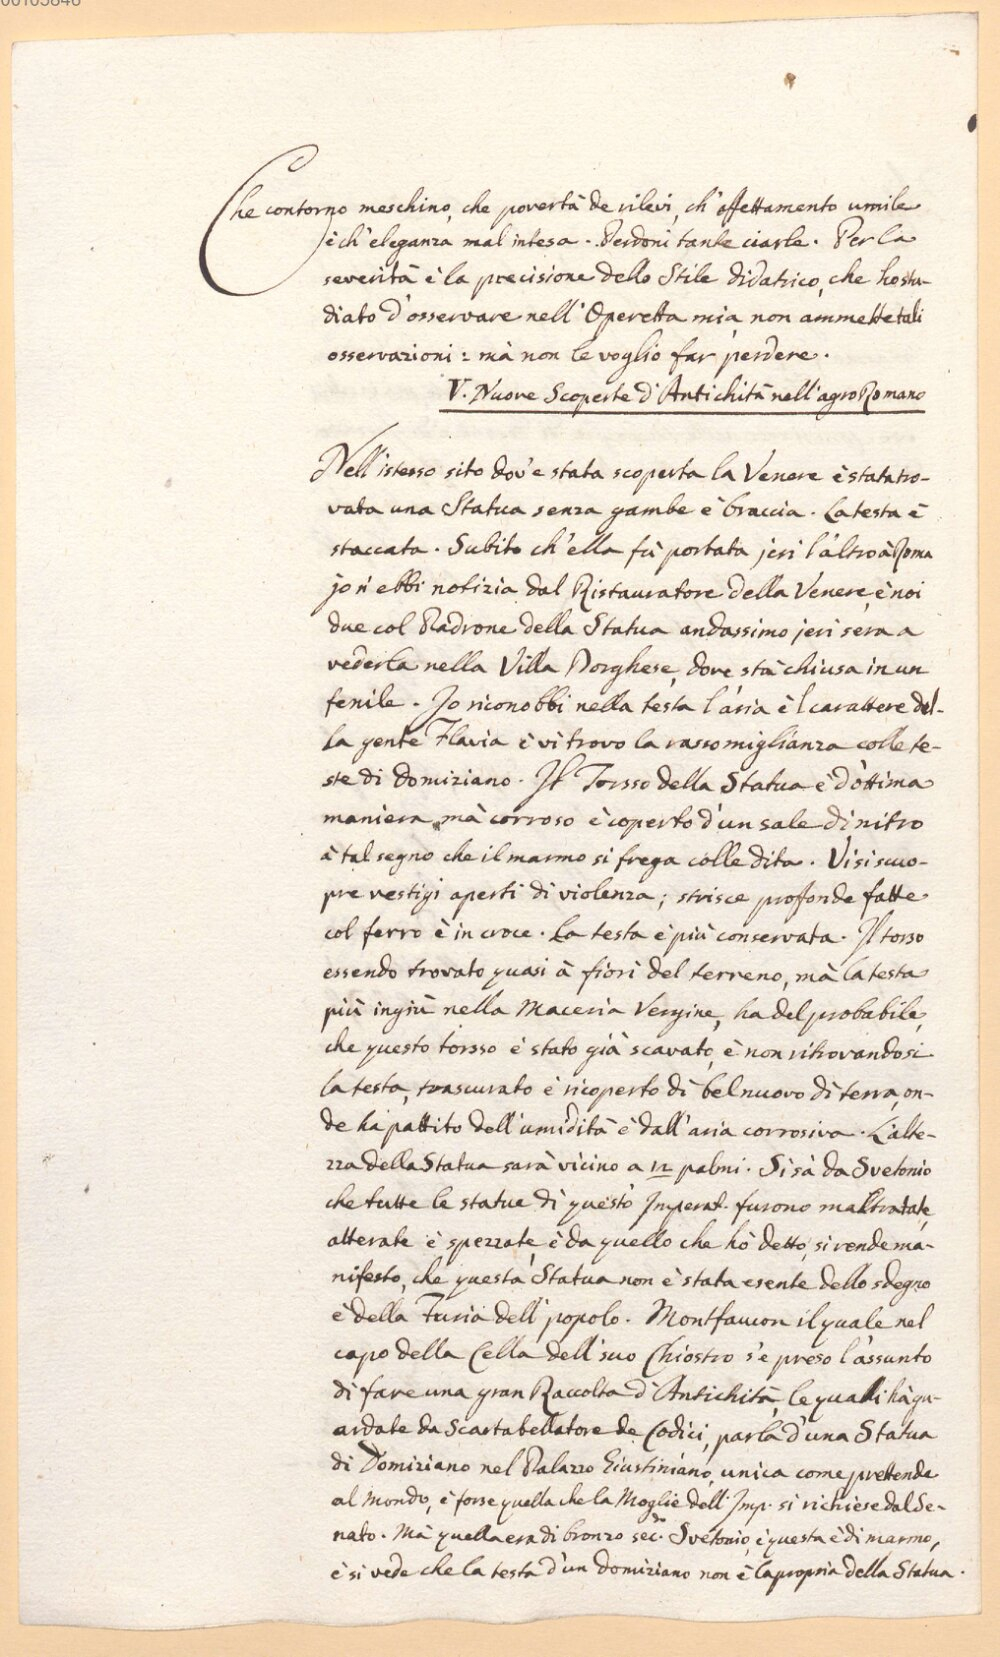 00103846
Che contorno meschino, che povertà de rilevi, ch'affettamento umile
è ch'eleganza mal intesa. Perdoni tante ciarle. Per la
severità è la precisione dello Stile didatrico, che ho stu-
diato d'osservare nell'Operetta mia, non ammette tali
osservazioni: mà non le voglio far perdere.
V. Nuove Scoperte d'Antichità nell'agro Romano
Nell'istesso sito dov'e stata scoperta la Venere è stata tro-
vata una Statua senza gambe è braccia. La testa è
staccata. Subito ch'ella fù portata jeri l'altro à Roma
jo n'ebbi notizia dal Ristauratore della Venere, è noi
due col Padrone della Statua andassimo jeri sera a
vederla nella Villa Borghese, dove stà chiusa in un
fenile. Jo riconobbi nella testa l'aria è l carattere del-
la gente Flavia è vi trovo la rassomiglianza colle te-
ste di Domiziano. Il Torsso della Statua è d'ottima
maniera, mà corroso è coperto d'un sale di nitro
à tal segno che il marmo si frega colle dita. Vi si scuo-
pre vestigi aperti di violenza; strisce profonde fatte
col ferro è in croce. La testa è più conservata. Il torso
essendo trovato quasi à fiori del terreno, mà la testa
più ingiù nella Maceria Vergine, ha del probabile,
che questo torsso è stato già scavato, è non ritrovandosi
la testa, trascurato è ricoperto di bel nuovo di terra, on-
de ha pattito dell'umidità è dall'aria corrosiva. L'alte-
zza della Statua sarà vicino a 12 palmi. Si sà da Svetonio
che tutte le statue di questo Imperat. furono maltratate,
atterate è spezzate, è da quello che hò detto, si rende ma-
nifesto, che questa Statua non è stata esente dello sdegno
è della Furia dell'popolo. Montfaucon il quale nel
capo della Cella dell'suo Chiostro s'è preso l'assunto
di fare una gran Raccolta d'Antichità, le quali hà gu-
ardate da Scartabellatore de Codici, parla d'una Statua
di Domiziano nel Palazzo Giustiniano, unica come prettende
al Mondo, è forse quella che la Moglie dell'Imp. si richiese dal Se-
nato. Mà quella era di bronzo sec.do Svetonio, è questa è di marmo,
è si vede che la testa d'un Domiziano non è la propria della Statua.